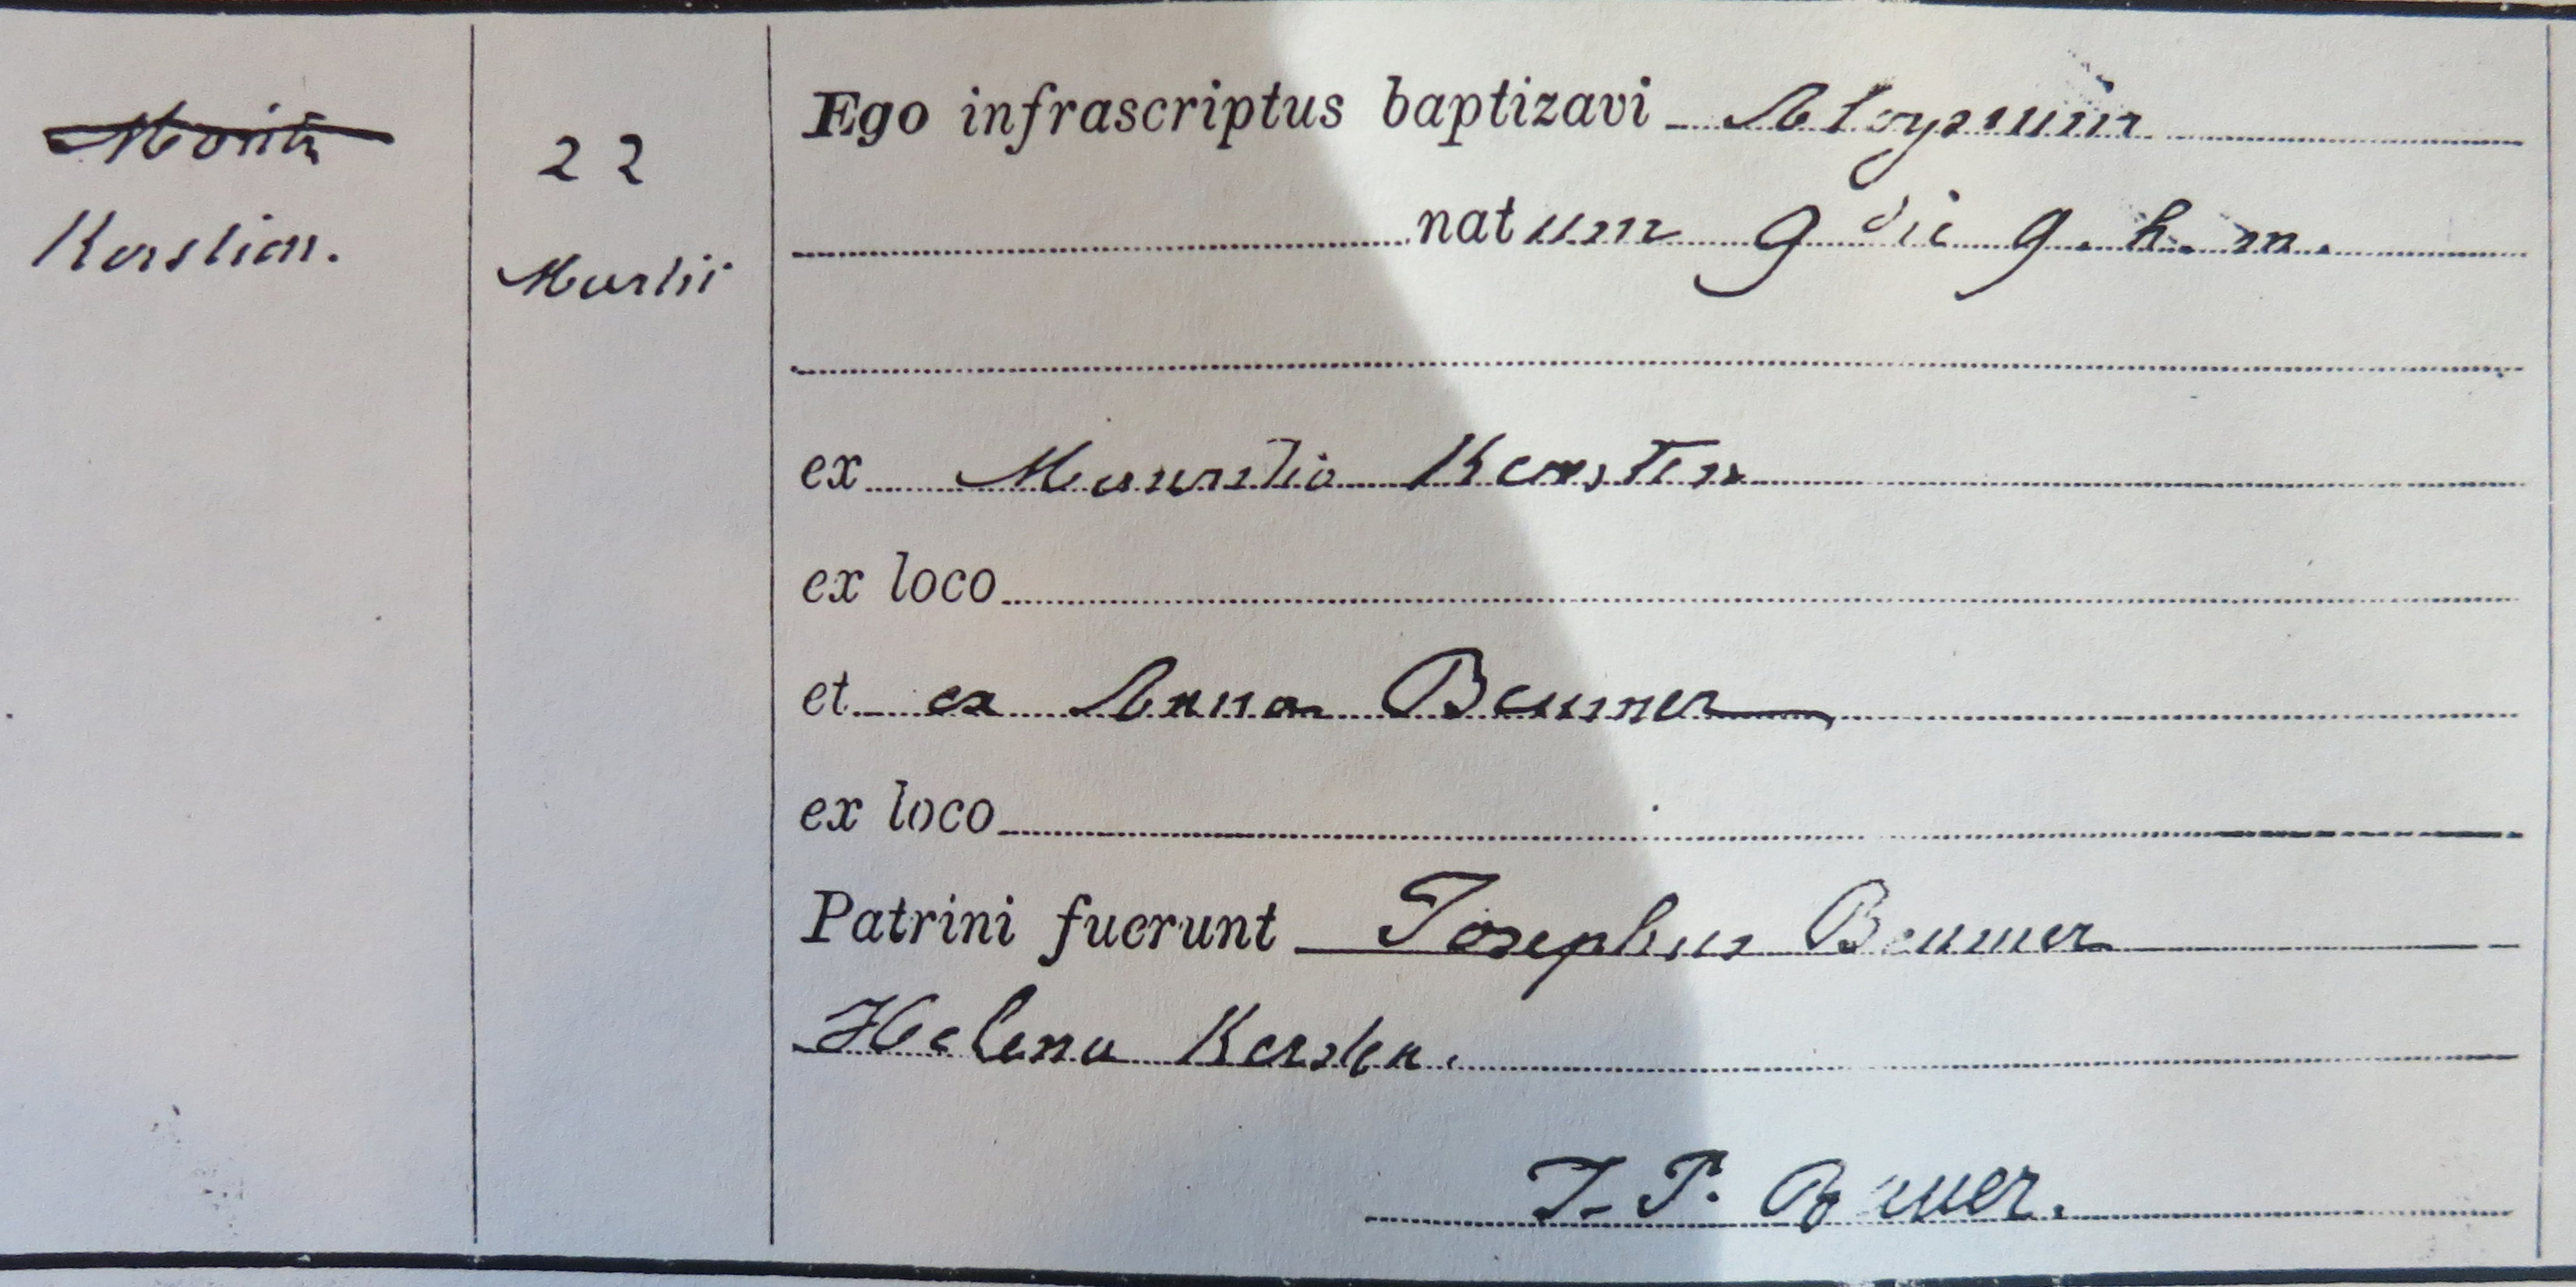 Moritz
Kerstien.
22
Martii
Ego infrascriptus baptizavi Aloysium
natum 9 die 9. h. m.
ex Mauritio Kersten
ex loco
et ex Anna Beumer
ex loco
Patrini fuerunt Josephus Beumer
Helena Kersten.
J. P.